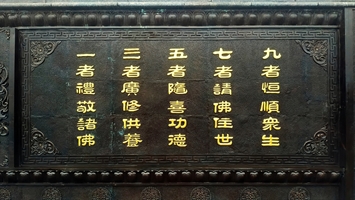 一者禮敬諸佛
三者廣修供養
五者隨喜功德
七者請佛住世
九者恒順眾生